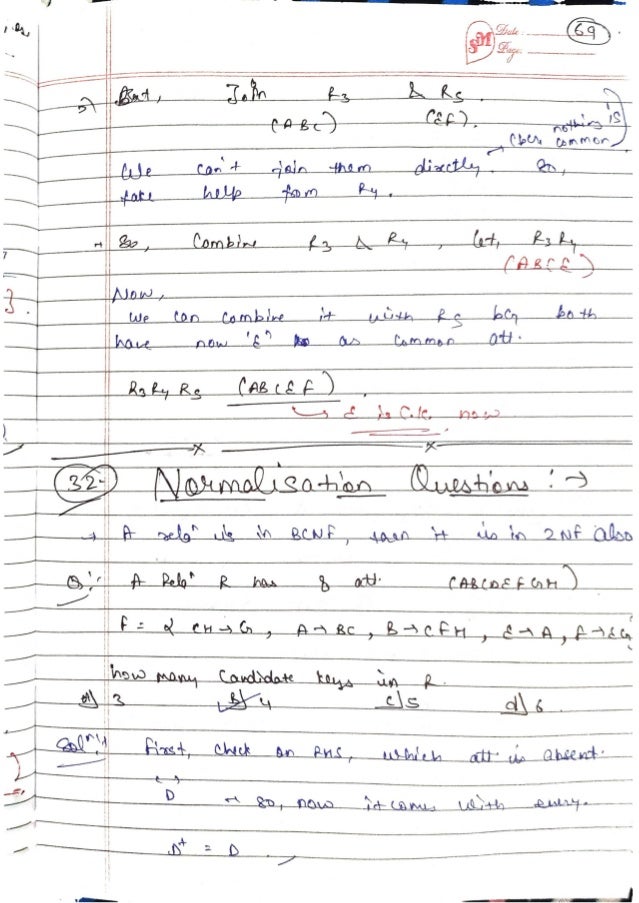 69
SM Date
Page
⇒ But, Join R3 & R5.
(ABC) (EF).
(bcz nothing is common)
We can't join them directly. So,
take help from R4.
→ So, Combine R3 & R4, let, R3R4
(ABCE)
Now,
we can combine it with R5 bcz both
have now 'E' as common att.
R3R4R5 (ABCEF).
→ E is C.k. now
32- Normalisation Questions :→
→ A relaⁿ is in BCNF, then it is in 2NF also
Q:- A Relaⁿ R has 8 att. (ABCDEFGH)
F = { CH→G, A→BC, B→CFH, E→A, F→EG
how many Candidate keys in R.
a) 3 b) 4 c) 5 d) 6.
Solⁿ:- first, check on RHS, which att is absent.
D → so, now it comes with every.
D⁺ = D